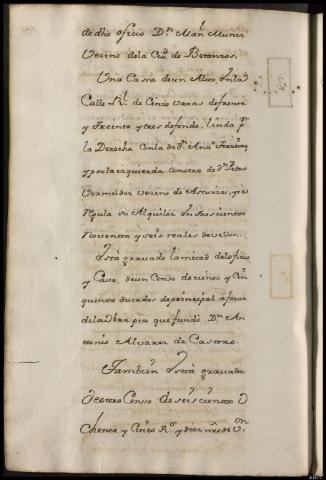 de dho oficio Dn. Manl. Muñiz
Vezino dela Ciud. de Betanzos.
Una Cassa de un Alto, en la
Calle Rl. de Cinco varas de frente
y treinta y tres de fondo, linda pr.
la Derecha con la de Dn. Anto. Ferreyro
y por la izquierda con otra de Dn. Pedro
Vermudez vezino de Asturias, y se
regula su Alquiler en trescientos
Noventa y seis reales de vellon.
Está gravado la mitad del oficio
y Casa, de un Censo de ciento y Cin
quenta ducados de principal a favor
de la obra pia que fundó Dn. An
tonio Alvarez de Castro.
Tambien está gravada
de otro Censo de seiscientos O
chenta y Cinco Rs. y diez mrs. de vn.